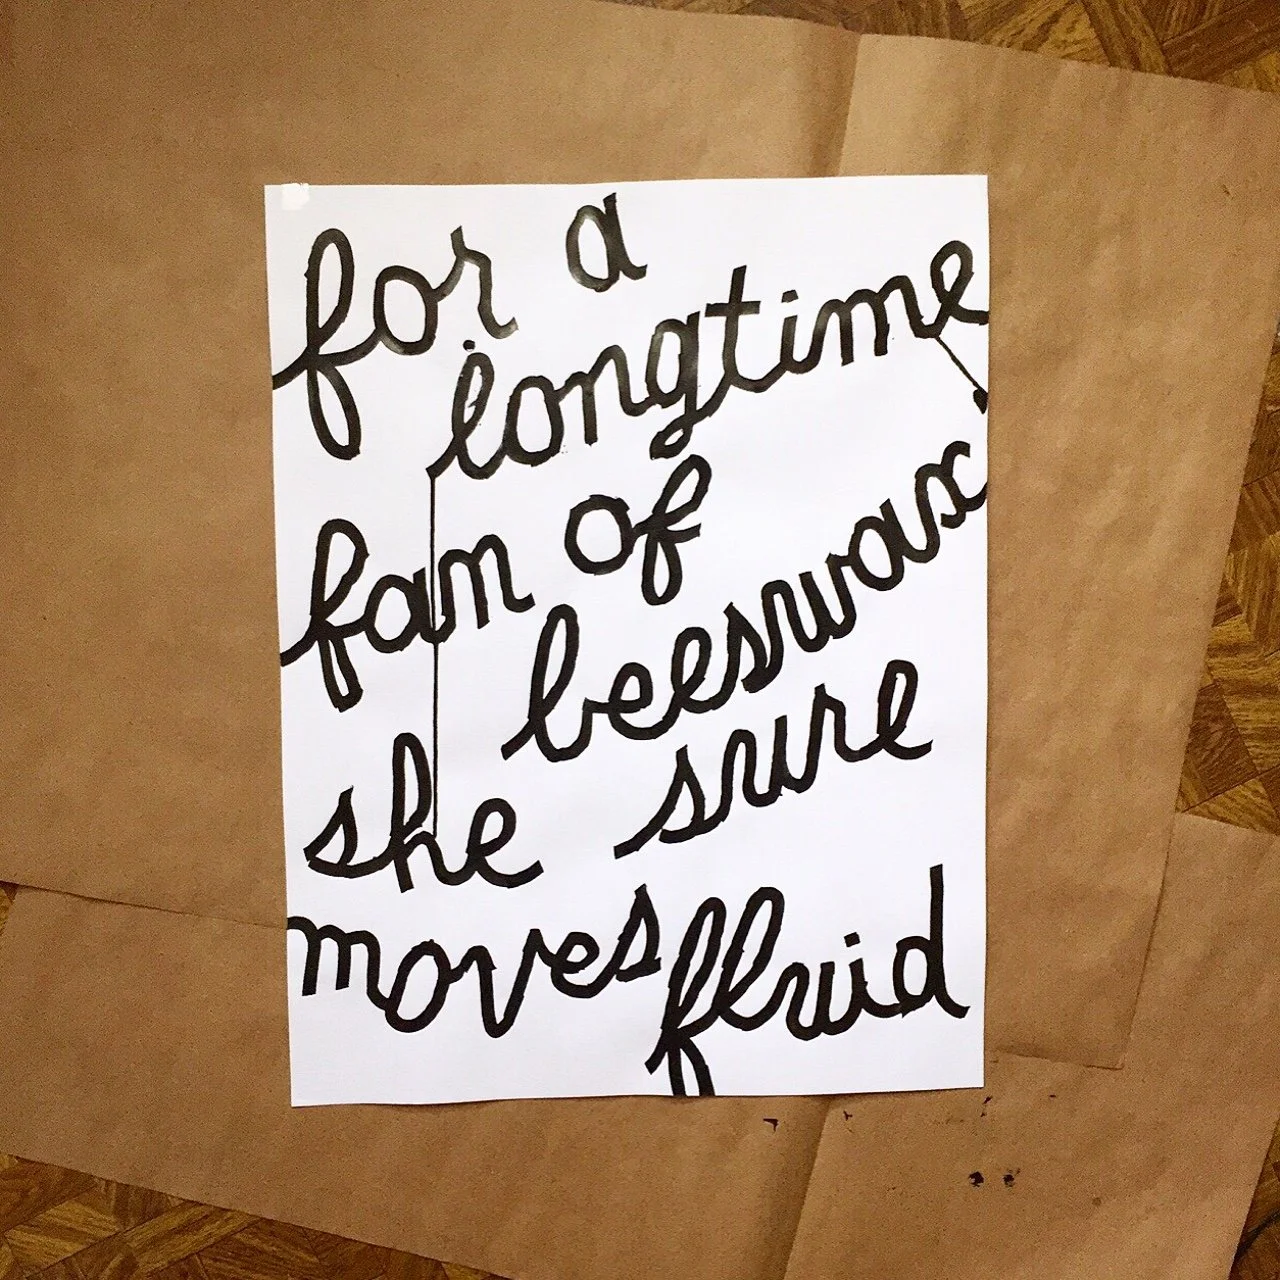 for a
longtime
fan of
beeswax
she sure
moves fluid